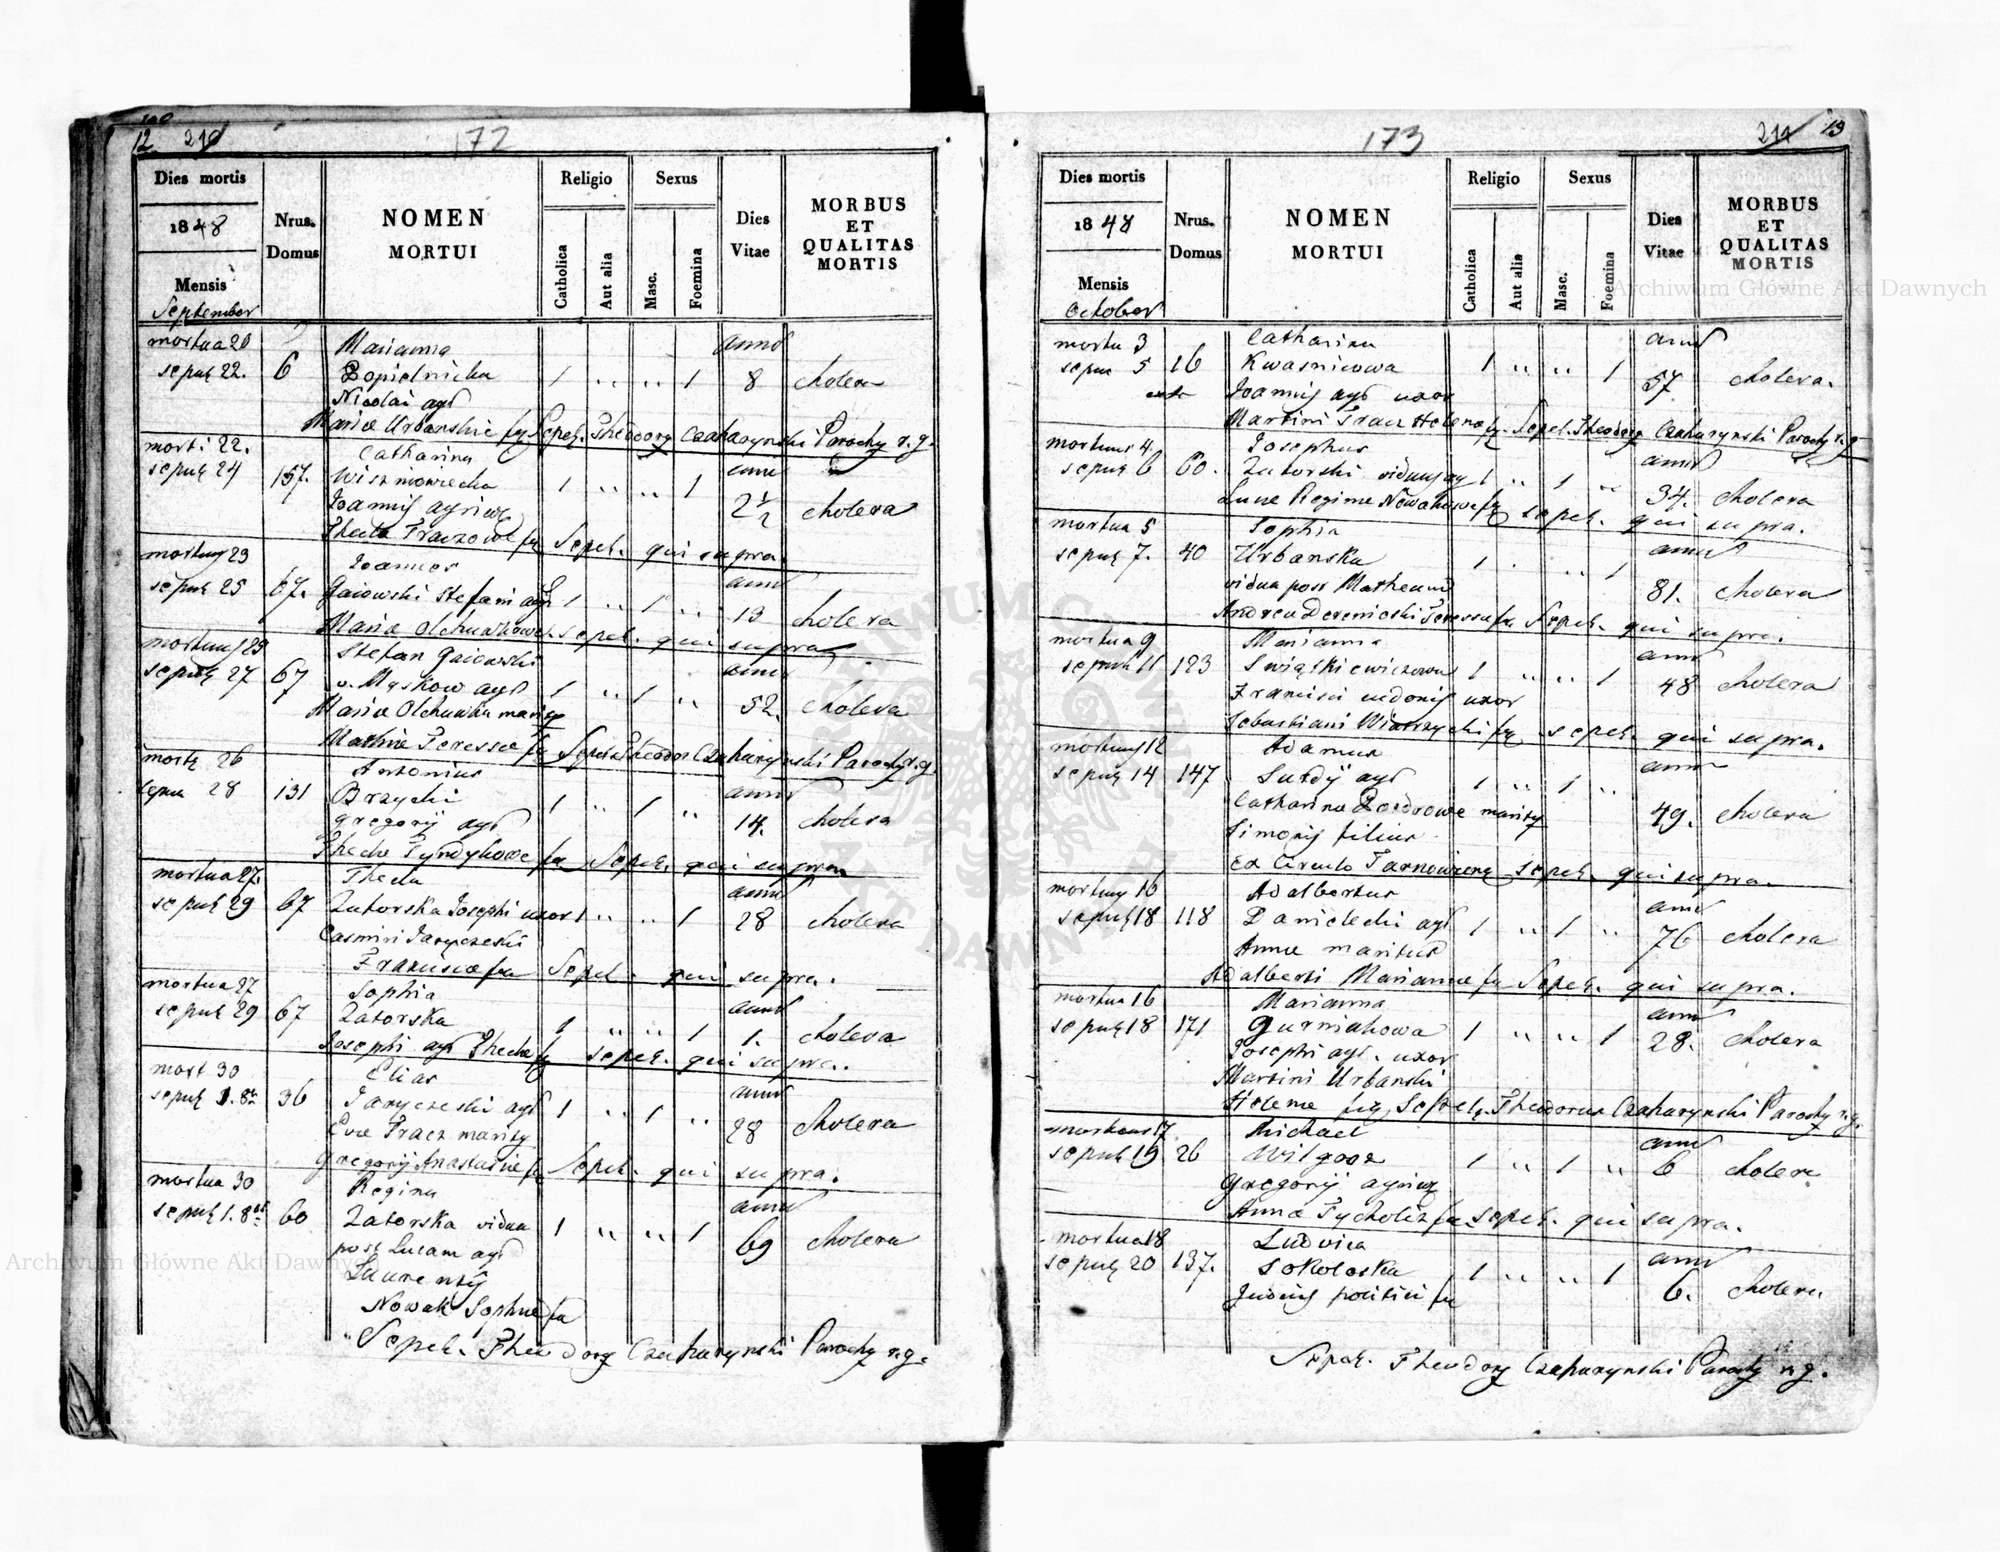 12 210
172
Dies mortis
1848
Mensis
September
Nrus. Domus
NOMEN
MORTUI
Religio
Catholica
Aut alia
Sexus
Masc.
Foemina
Dies Vitae
MORBUS
ET
QUALITAS
MORTIS
mortua 20 Marianna anno
sepult 22. 6 Popielnicka 1 " " 1 8 cholera
Nicolai agr
Maria Urbanskie fa Sepel. Theodorg Czaharynski Parochg r. g.
mort: 22. Catharina anno
sepult 24 137. Wiszniowiecka 1 " " 1 2 1/2 cholera
Joannis agricol
Thecla Traczowe fa Sepel. qui supra.
mortuus 23 Joannes anno
sepult 25 67. Gaiowski Stefani agr 1 " 1 " 13 cholera
Maria Olchuwkowe sepel. qui supra
mortuus 23 Stefan Gaiowski anno
sepult 27 67 v. Mąskow agr 1 " 1 " 52. cholera
Maria Olchuwka marit
Mathie Feressae fa Sepel Theodor Czaharynski Parochg r. g.
mort 26 Antonius anno
sepu 28 131 Brzycki 1 " 1 " 14. cholera
Gregorij agr
Thecle Tyndykowe fa Sepel. qui supra
mortua 27. Thecla anno
sepult 29 67 Zatorska Josephi uxor 1 " " 1 28 cholera
Casmiri Jaryczeski
Francisca fa Sepel. qui supra.
mortua 27 Sophia anno
sepult 29 67 Zatorska 1 " " 1 1. cholera
Josephi agr Thecla fa sepel. qui supra.
mort 30 Elias anno
sepult 1. 8br 36 Jaryczeski agr 1 " 1 " 28 cholera
Eve Tracz marit
Gregorij Anastasiae fa Sepel. qui supra.
mortua 30 Regina anno
sepult 1. 8br 60 Zatorska vidua 1 " " 1 69 cholera
post Lucam agr
Laurentij
Nowak Sophiae fa
Sepel. Theodorg Czaharynski Parochg r. g.
173
211 13
Dies mortis
1848
Mensis
October
Nrus. Domus
NOMEN
MORTUI
Religio
Catholica
Aut alia
Sexus
Masc.
Foemina
Dies Vitae
MORBUS
ET
QUALITAS
MORTIS
mortu 3 Catharina anno
sepu 5 16 Kwasnicowa 1 " " 1 57 cholera.
Joannis agr uxor
Martini Tracz Helena fa. Sepel. Theodorg Czaharynski Parochg r. g
mortuus 4 Josephus anno
sepult 6 60. Zatorski viduus agr 1 " 1 " 34. cholera
Lucae Regine Nowakowe fa sepel. qui supra.
mortua 5 Sophia anno
sepult 7. 40 Urbanska 1 " " 1 81. cholera
vidua post Matheum
Andrea Derenioski Feressa fa Sepel. qui supra.
mortua 9 Marianna anno
sepult 11 123 Swiątkiewiczowa 1 " " 1 48 cholera
Francisci uxor
Sebastiani fa sepel. qui supra.
mortuus 12 Adamus anno
sepult 14 147 Surdy agr 1 " 1 " 49. cholera
Catharina marit
Simonis filius
Ex Circulo Tarnowiens sepel. qui supra.
mortuus 16 Adalbertus anno
sepult 18 118 Danielecki agr 1 " 1 " 76 cholera
Anna maritus
Adalberti Marianne fa Sepel. qui supra.
mortua 16 Marianna anno
sepult 18 171 Gurniakowa 1 " " 1 28. cholera
Josephi agr. uxor
Martini Urbanski
Helene fa Sepel. Theodorus Czaharynski Parochg r. g.
mortuus 17 Michael anno
sepult 19 26 Wilgosz 1 " 1 " 6 cholera
Gregorij agricol
Anna Tycholiz fa sepel. qui supra.
mortua 18 Ludvica anno
sepult 20 137. Sokoloska 1 " " 1 6. cholera
Judicis politici fa
Sepel. Theodorg Czaharynski Parochg r. g.
Archiwum Główne Akt Dawnych
Archiwum Główne Akt Dawnych
ARCHIWUM GŁÓWNE AKT DAWNYCH